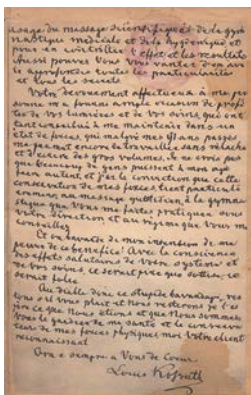 usage du massage scientifique et de la gym
nastique médicale et de la hygiénique et
pour en contrôler l'effet et les resultats
Aussi pouvez Vous vous vanter d'en avoir
approfondi toutes les particularités
et tous les secrets.
Votre devouement affectueux à ma per
sonne m'a fourni ample occasion de profi
ter de vos lumieres et de vos soins, qui ont
tant contribué à me maintenir dans un
état de forces, qui malgré mes 91 ans passés
me permet encore de travailler sans relâche
et d'écrire des gros volumes. Je ne crois pas
que beaucoup de gens puissent à mon age
en faire autant, et j'ai la conviction que cette
conservation de mes forces tient particuliè
rement au massage quotidien, à la gymna
stique que Vous me faites pratiquer sous
votre direction et au régime que Vous me
conseillez.
Et on bavarde de mon intention de me
de ce benefice! Avec la conscience
des effets salutaires de Votre systeme et
de vos soins, ce serait pire que sottise, ce
serait folie.
Au diable donc ce stupide bavardage, res
tons s'il vous plait et nous resterons je l'es
père ce que Nous étions et que Nous sommes
Vous le gardien de ma santé et le conserva
teur de mes forces physiques, moi votre client
reconnaissant
Ora e sempre a Vous de Coeur
Louis Kossuth